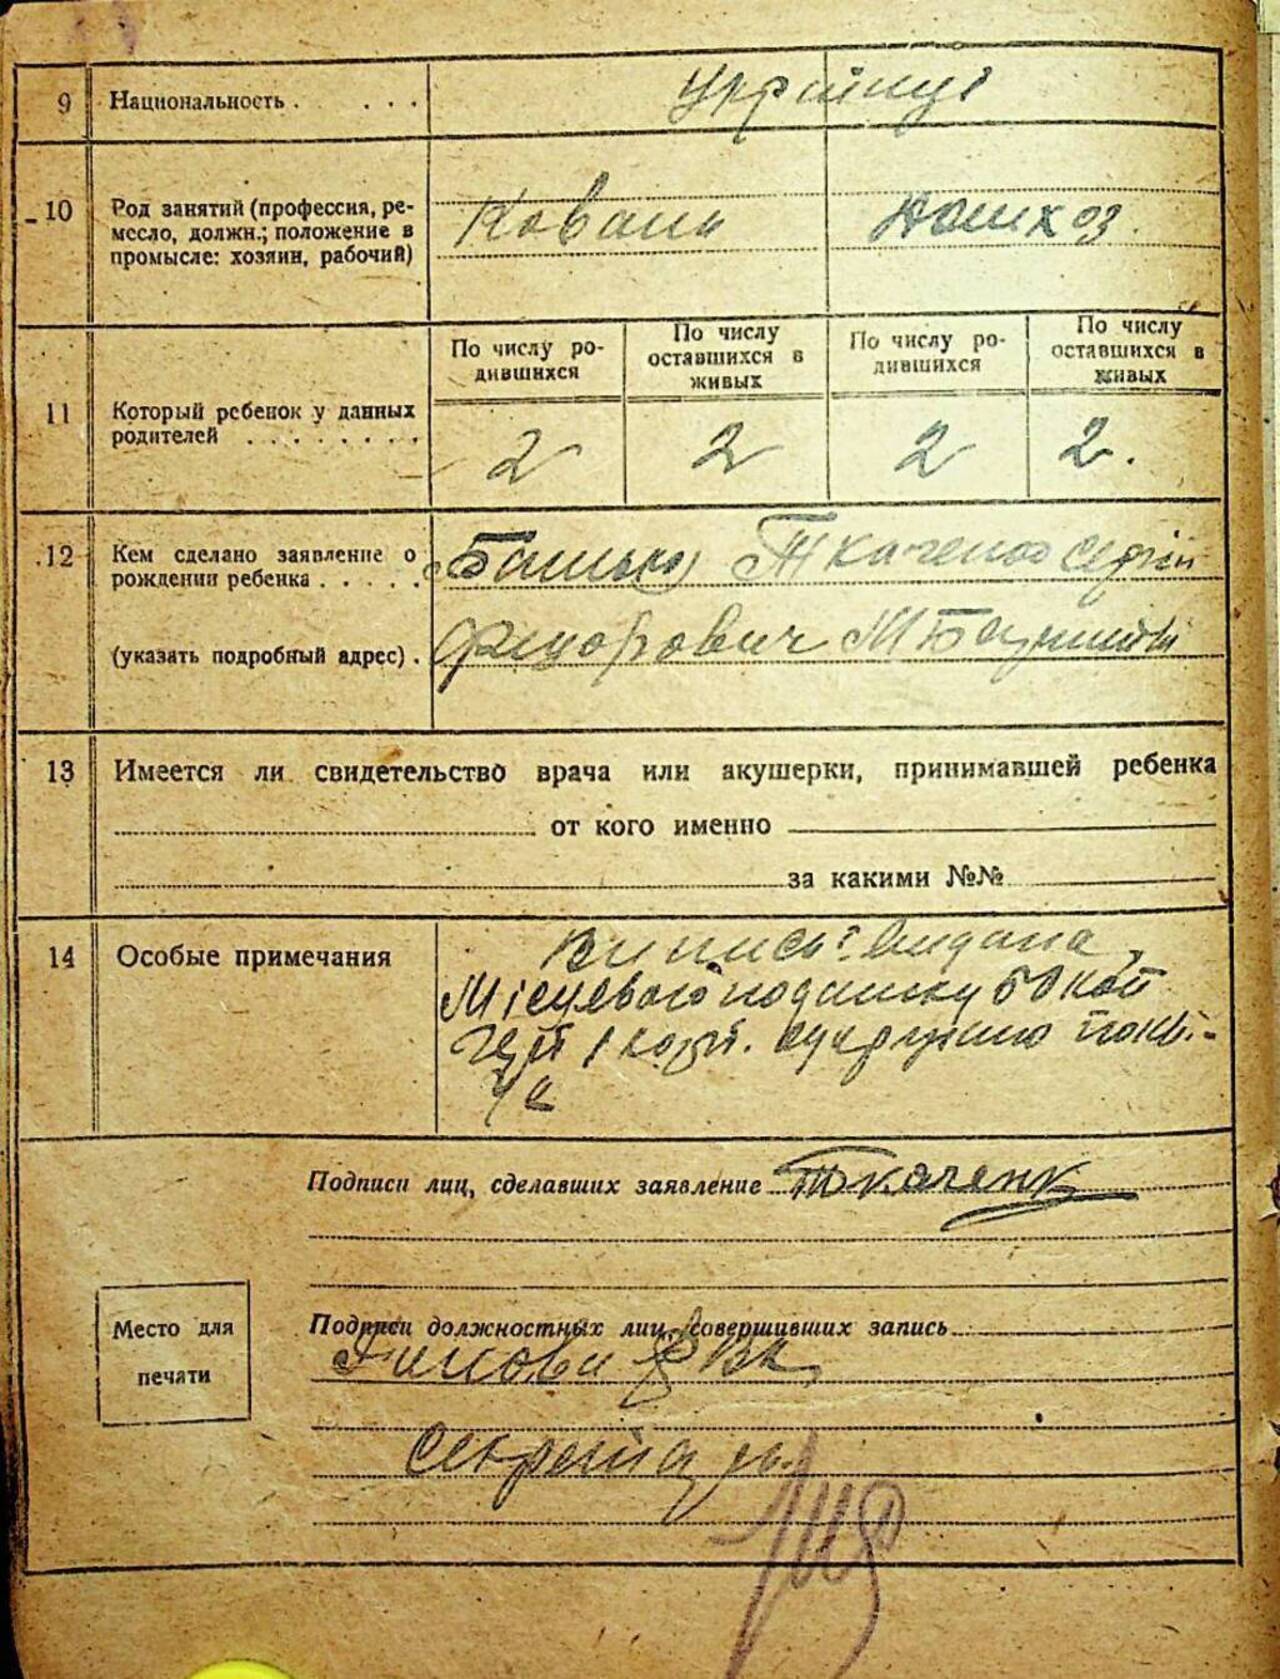 9 Национальность . . . . Українці
10 Род занятий (профессия, ре-
месло, должн.; положение в
промысле: хозяин, рабочий)
Коваль Домхоз.
11 Который ребенок у данных
родителей . . . . . . . .
По числу ро-
дившихся
По числу
оставшихся в
живых
По числу ро-
дившихся
По числу
оставшихся в
живых
2 2 2 2.
12 Кем сделано заявление о
рождении ребенка . . . . .
(указать подробный адрес) .
Батько Ткаченко Сергій
Федорович М
13 Имеется ли свидетельство врача или акушерки, принимавшей ребенка
от кого именно
за какими №№
14 Особые примечания
Випись видана
Місцевого податку 50 коп
1 карб.
Подписи лиц, сделавших заявление Ткаченк
Место для
печати
Подписи должностных лиц, совершивших запись
Голови
Секретарь